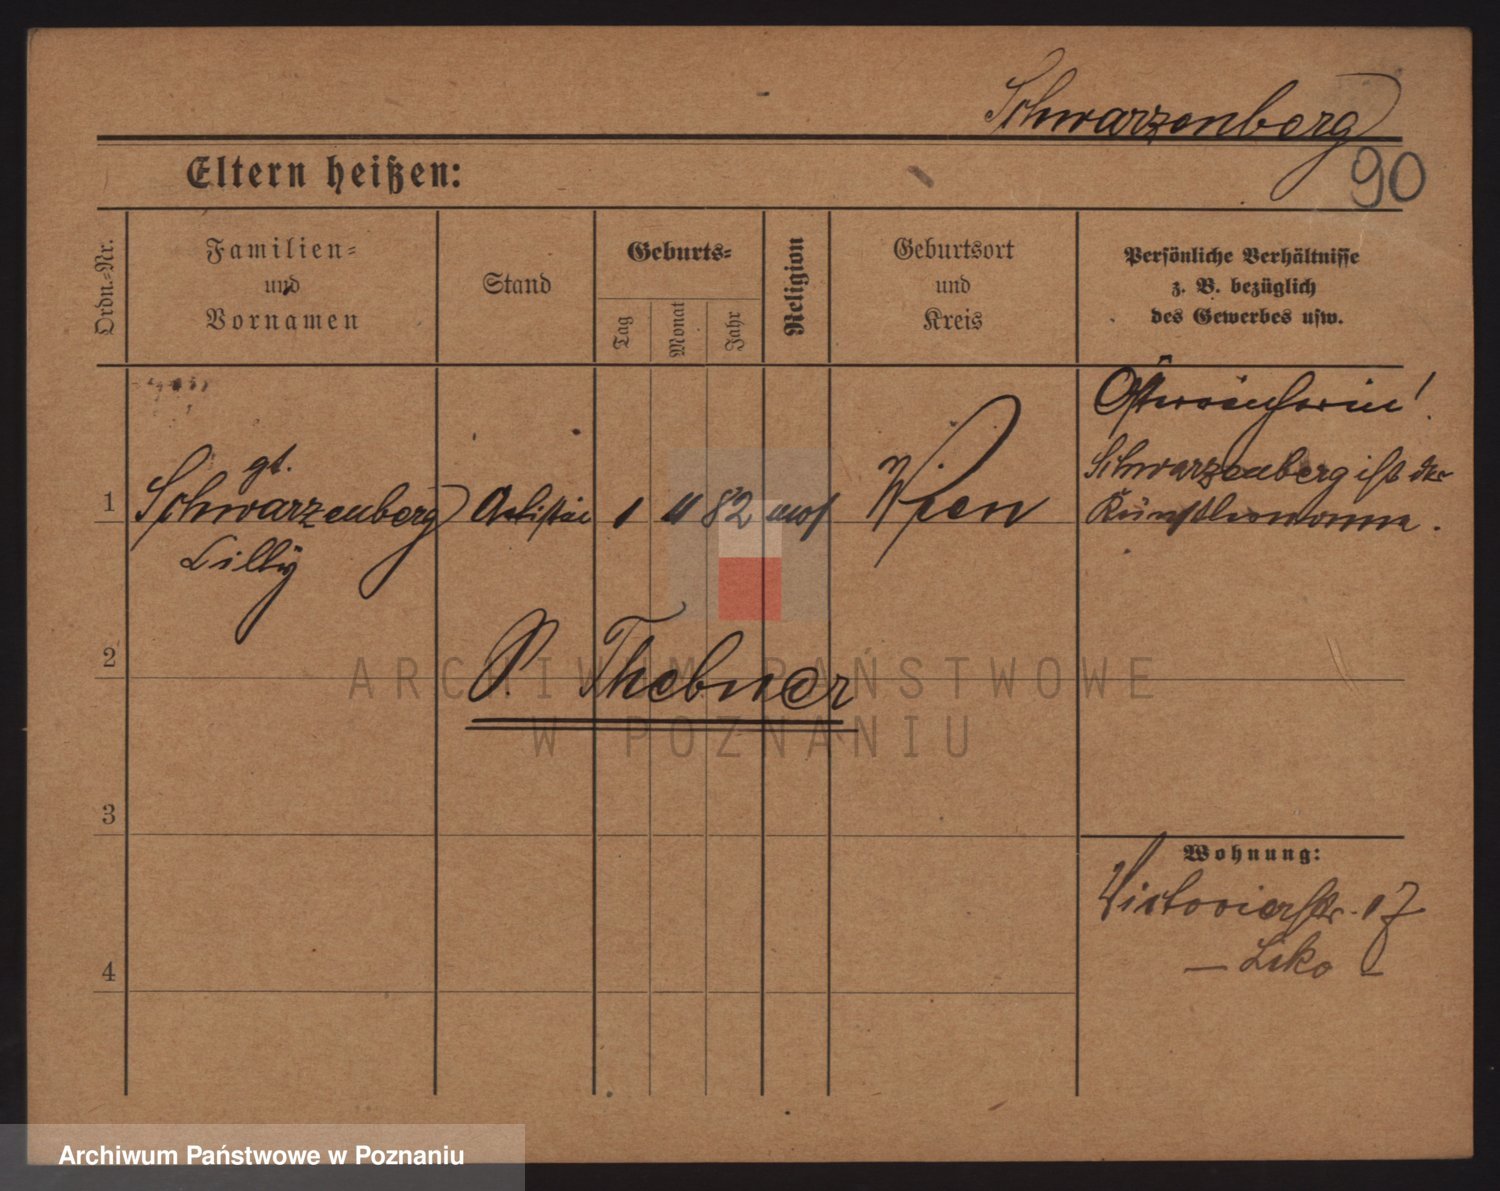 Schwarzenberg
90
Eltern heißen:
Ordn.-Nr.
Familien-
und
Vornamen
Stand
Geburts-
Tag
Monat
Jahr
Religion
Geburtsort
und
Kreis
Persönliche Verhältnisse
z. B. bezüglich
des Gewerbes usw.
Österreicherin!
1
gt.
Schwarzenberg
Lilly
Artistin
1
11
82
mos
Wien
Schwarzenberg ist der
Künstlername.
2
S. Thebner
3
4
Wohnung:
Victoriastr. 17
ARCHIWUM PAŃSTWOWE
W POZNANIU
Archiwum Państwowe w Poznaniu